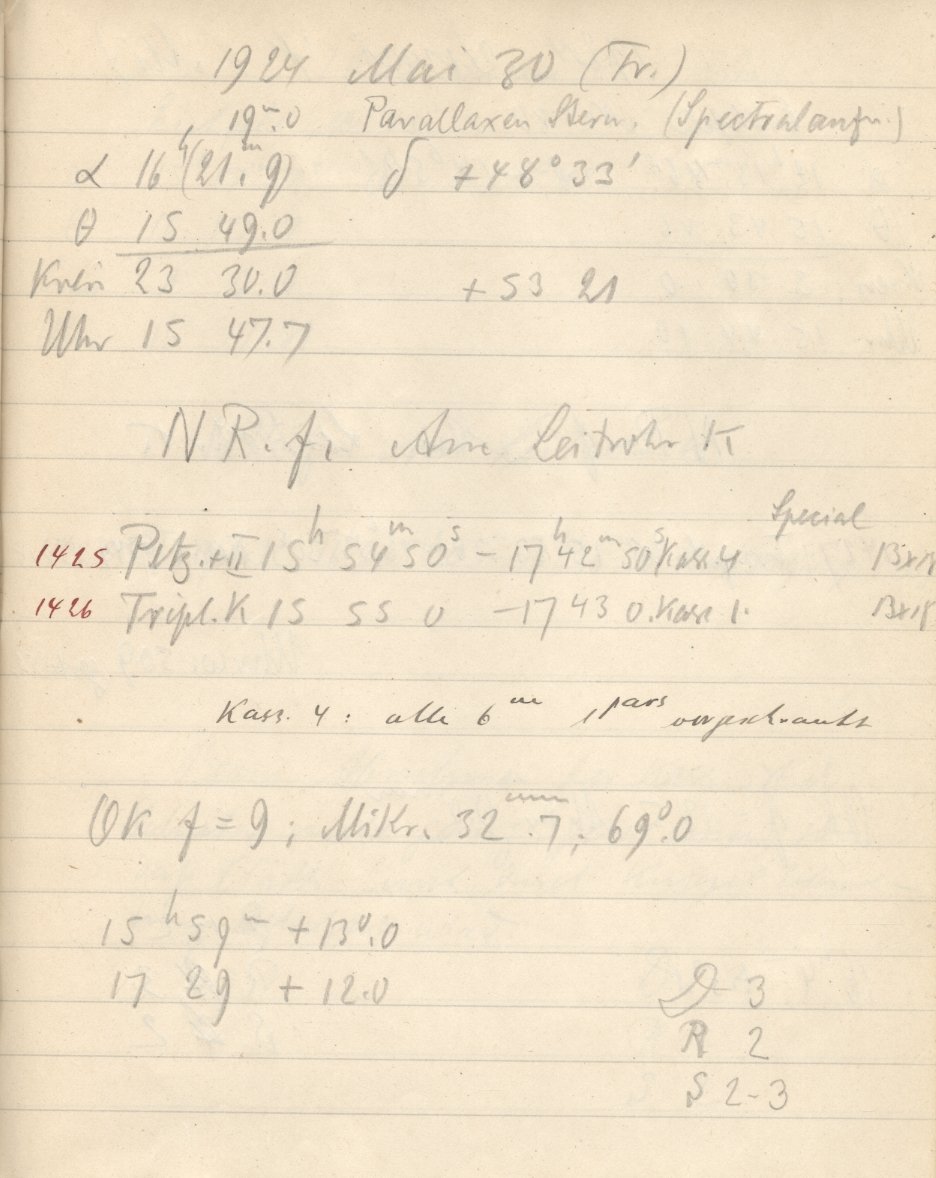 1924 Mai 30 (Fr.)
19ᵐ.0 Parallaxen Stern. (Spectralaufn.)
α 16ʰ (21ᵐ.9) δ +48° 33'
θ 15 49.0
Kreis 23 30.0 +53 21
Uhr 15 47.7
N R. f. Am Leitrohr K
Special
1425 Petz.+II 15ʰ 54ᵐ 50ˢ – 17ʰ 42ᵐ 50ˢ Kass. 4 13x18
1426 Tripl. K 15 55 0 – 17 43 0. Kass 1. 13x18
Kass. 4: alle 6ᵐ 1 pars vorgeschraubt
OK f = 9; Mikr. 32ᵐᵐ.7; 69°.0
15ʰ 59ᵐ +13°.0
17 29 +12.0
D 3
R 2
S 2-3